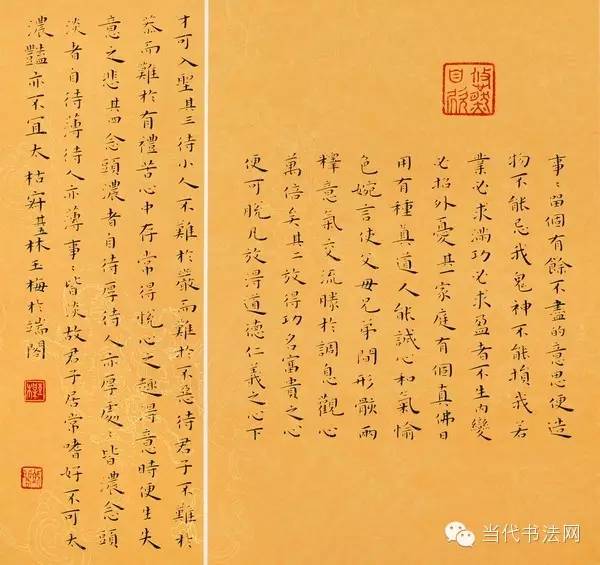 事〻留個有餘不盡的意思便造
物不能忌我鬼神不能損我若
業必求滿功必求盈者不生內變
必招外憂其一家庭有個真佛日
用有種真道人能誠心和氣愉
色婉言使父母兄弟間形骸兩
釋意氣交流勝於調息觀心
萬倍矣其二放得功名富貴之心
便可脫凡放得道德仁義之心下
才可入聖其三待小人不難於嚴而難於不惡待君子不難於
恭而難於有禮苦心中存常得悅心之趣得意時便生失
意之悲其四念頭濃者自待厚待人亦厚處〻皆濃念頭
淡者自待薄待人亦薄事〻皆淡故君子居常嗜好不可太
濃豔亦不宜太枯寂林玉梅於端閣
当代书法网